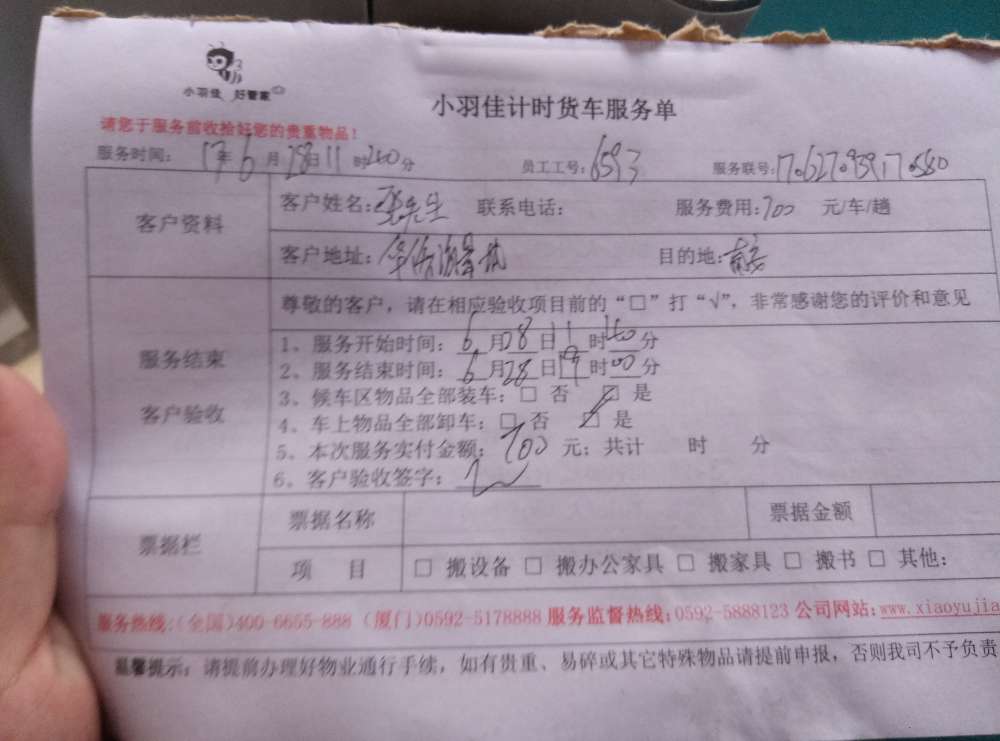 小羽佳 好管家
小羽佳计时货车服务单
请您于服务前收拾好您的贵重物品！
服务时间： 17年6月28日11时40分 员工工号：6593 服务联号：
客户资料
客户姓名： 先生 联系电话： 服务费用：700 元/车/趟
客户地址： 目的地：
尊敬的客户，请在相应验收项目前的“□”打“√”，非常感谢您的评价和意见
服务结束
客户验收
1、服务开始时间：6月28日11时40分
2、服务结束时间：6月28日19时00分
3、候车区物品全部装车：□ 否 ☑ 是
4、车上物品全部卸车：□ 否 ☑ 是
5、本次服务实付金额：700 元；共计 时 分
6、客户验收签字：
票据栏
票据名称 票据金额
项 目 □ 搬设备 □ 搬办公家具 □ 搬家具 □ 搬书 □ 其他：
服务热线：(全国)400-6655-888 (厦门)0592-5178888 服务监督热线：0592-5888123 公司网站：www.xiaoyujia
温馨提示：请提前办理好物业通行手续，如有贵重、易碎或其它特殊物品请提前申报，否则我司不予负责